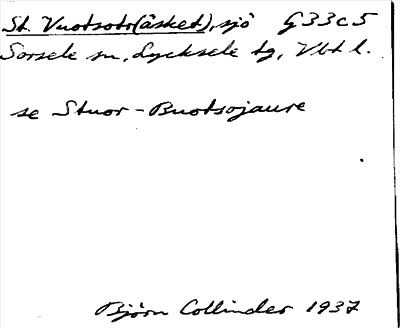 St. Vuotsotr(åsket), sjö G33c5
Sorsele sn, Lycksele tg, Vbt l.
se Stuor-Buotsojaure
Björn Collinder 1937